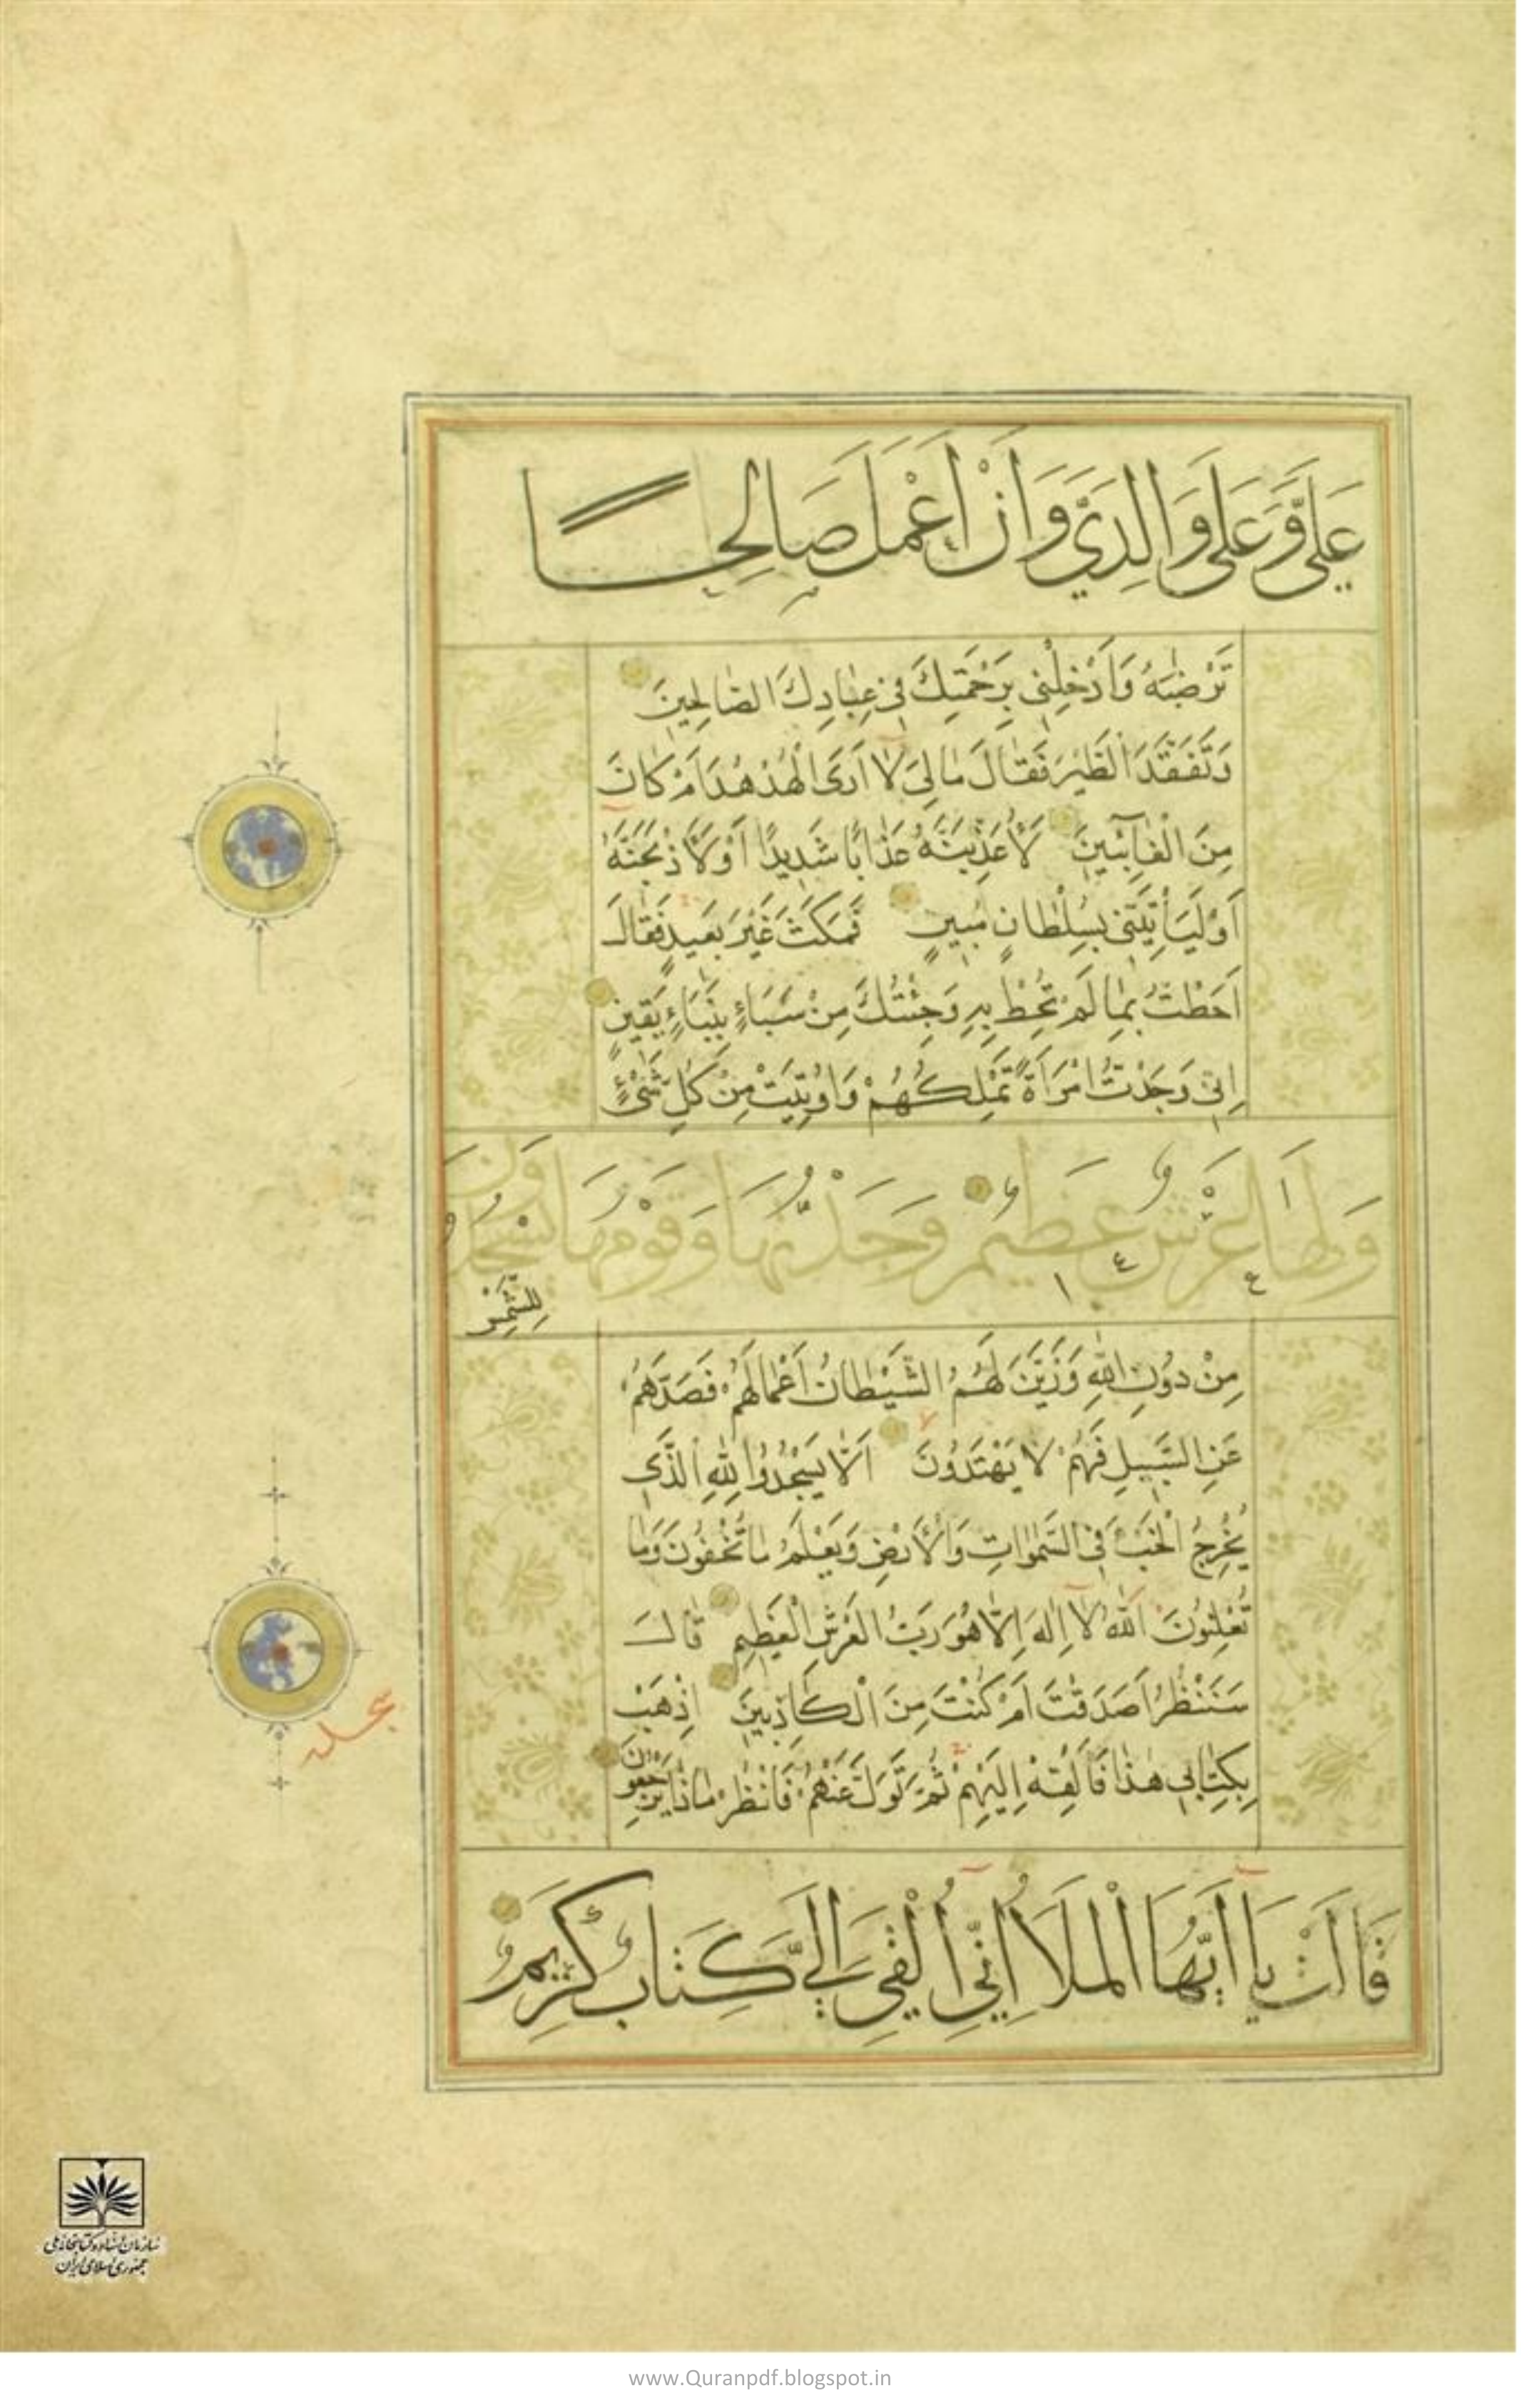 عَلَيَّ وَعَلَى وَالِدَيَّ وَاَنْ اَعْمَلَ صَالِحًا
تَرْضٰيهُ وَاَدْخِلْنى بِرَحْمَتِكَ فى عِبَادِكَ الصَّالِحينَ
وَتَفَقَّدَ الطَّيْرَ فَقَالَ مَالِىَ لَا اَرَى الْهُدْهُدَ اَمْ كَانَ
مِنَ الْغَآئِبينَ لَاُعَذِّبَنَّهُ عَذَابًا شَديدًا اَوْ لَاَذْبَحَنَّهُ
اَوْ لَيَاْتِيَنّى بِسُلْطَانٍ مُبينٍ فَمَكَثَ غَيْرَ بَعيدٍ فَقَالَ
اَحَطْتُ بِمَا لَمْ تُحِطْ بِه وَجِئْتُكَ مِنْ سَبَاءٍ بِنَبَاءٍ يَقينٍ
اِنّى وَجَدْتُ امْرَاَةً تَمْلِكُهُمْ وَاُوتِيَتْ مِنْ كُلِّ شَىْءٍ
وَلَهَا عَرْشٌ عَظيمٌ وَجَدْتُهَا وَقَوْمَهَا يَسْجُدُونَ
لِلشَّمْسِ
مِنْ دُونِ اللهِ وَزَيَّنَ لَهُمُ الشَّيْطَانُ اَعْمَالَهُمْ فَصَدَّهُمْ
عَنِ السَّبيلِ فَهُمْ لَا يَهْتَدُونَ اَلَّا يَسْجُدُوا لِلّٰهِ الَّذى
يُخْرِجُ الْخَبْءَ فِى السَّمٰوَاتِ وَالْاَرْضِ وَيَعْلَمُ مَا تُخْفُونَ وَمَا
تُعْلِنُونَ اَللّٰهُ لَا اِلٰهَ اِلَّا هُوَ رَبُّ الْعَرْشِ الْعَظيمِ قَالَ
سَنَنْظُرُ اَصَدَقْتَ اَمْ كُنْتَ مِنَ الْكَاذِبينَ اِذْهَبْ
بِكِتَابى هٰذَا فَاَلْقِهْ اِلَيْهِمْ ثُمَّ تَوَلَّ عَنْهُمْ فَانْظُرْ مَاذَا يَرْجِعُونَ
قَالَتْ يَا اَيُّهَا الْمَلَاُ اِنّى اُلْقِىَ اِلَيَّ كِتَابٌ كَريمٌ
سجده
سازمان اسناد و کتابخانه ملی
جمهوری اسلامی ایران
www.Quranpdf.blogspot.in